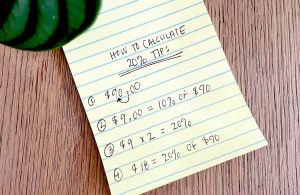 HOW TO CALCULATE
20% TIP:
① $90.00
② $9.00 = 10% of $90
③ $9 x 2 = 20%
④ $18 = 20% of $90